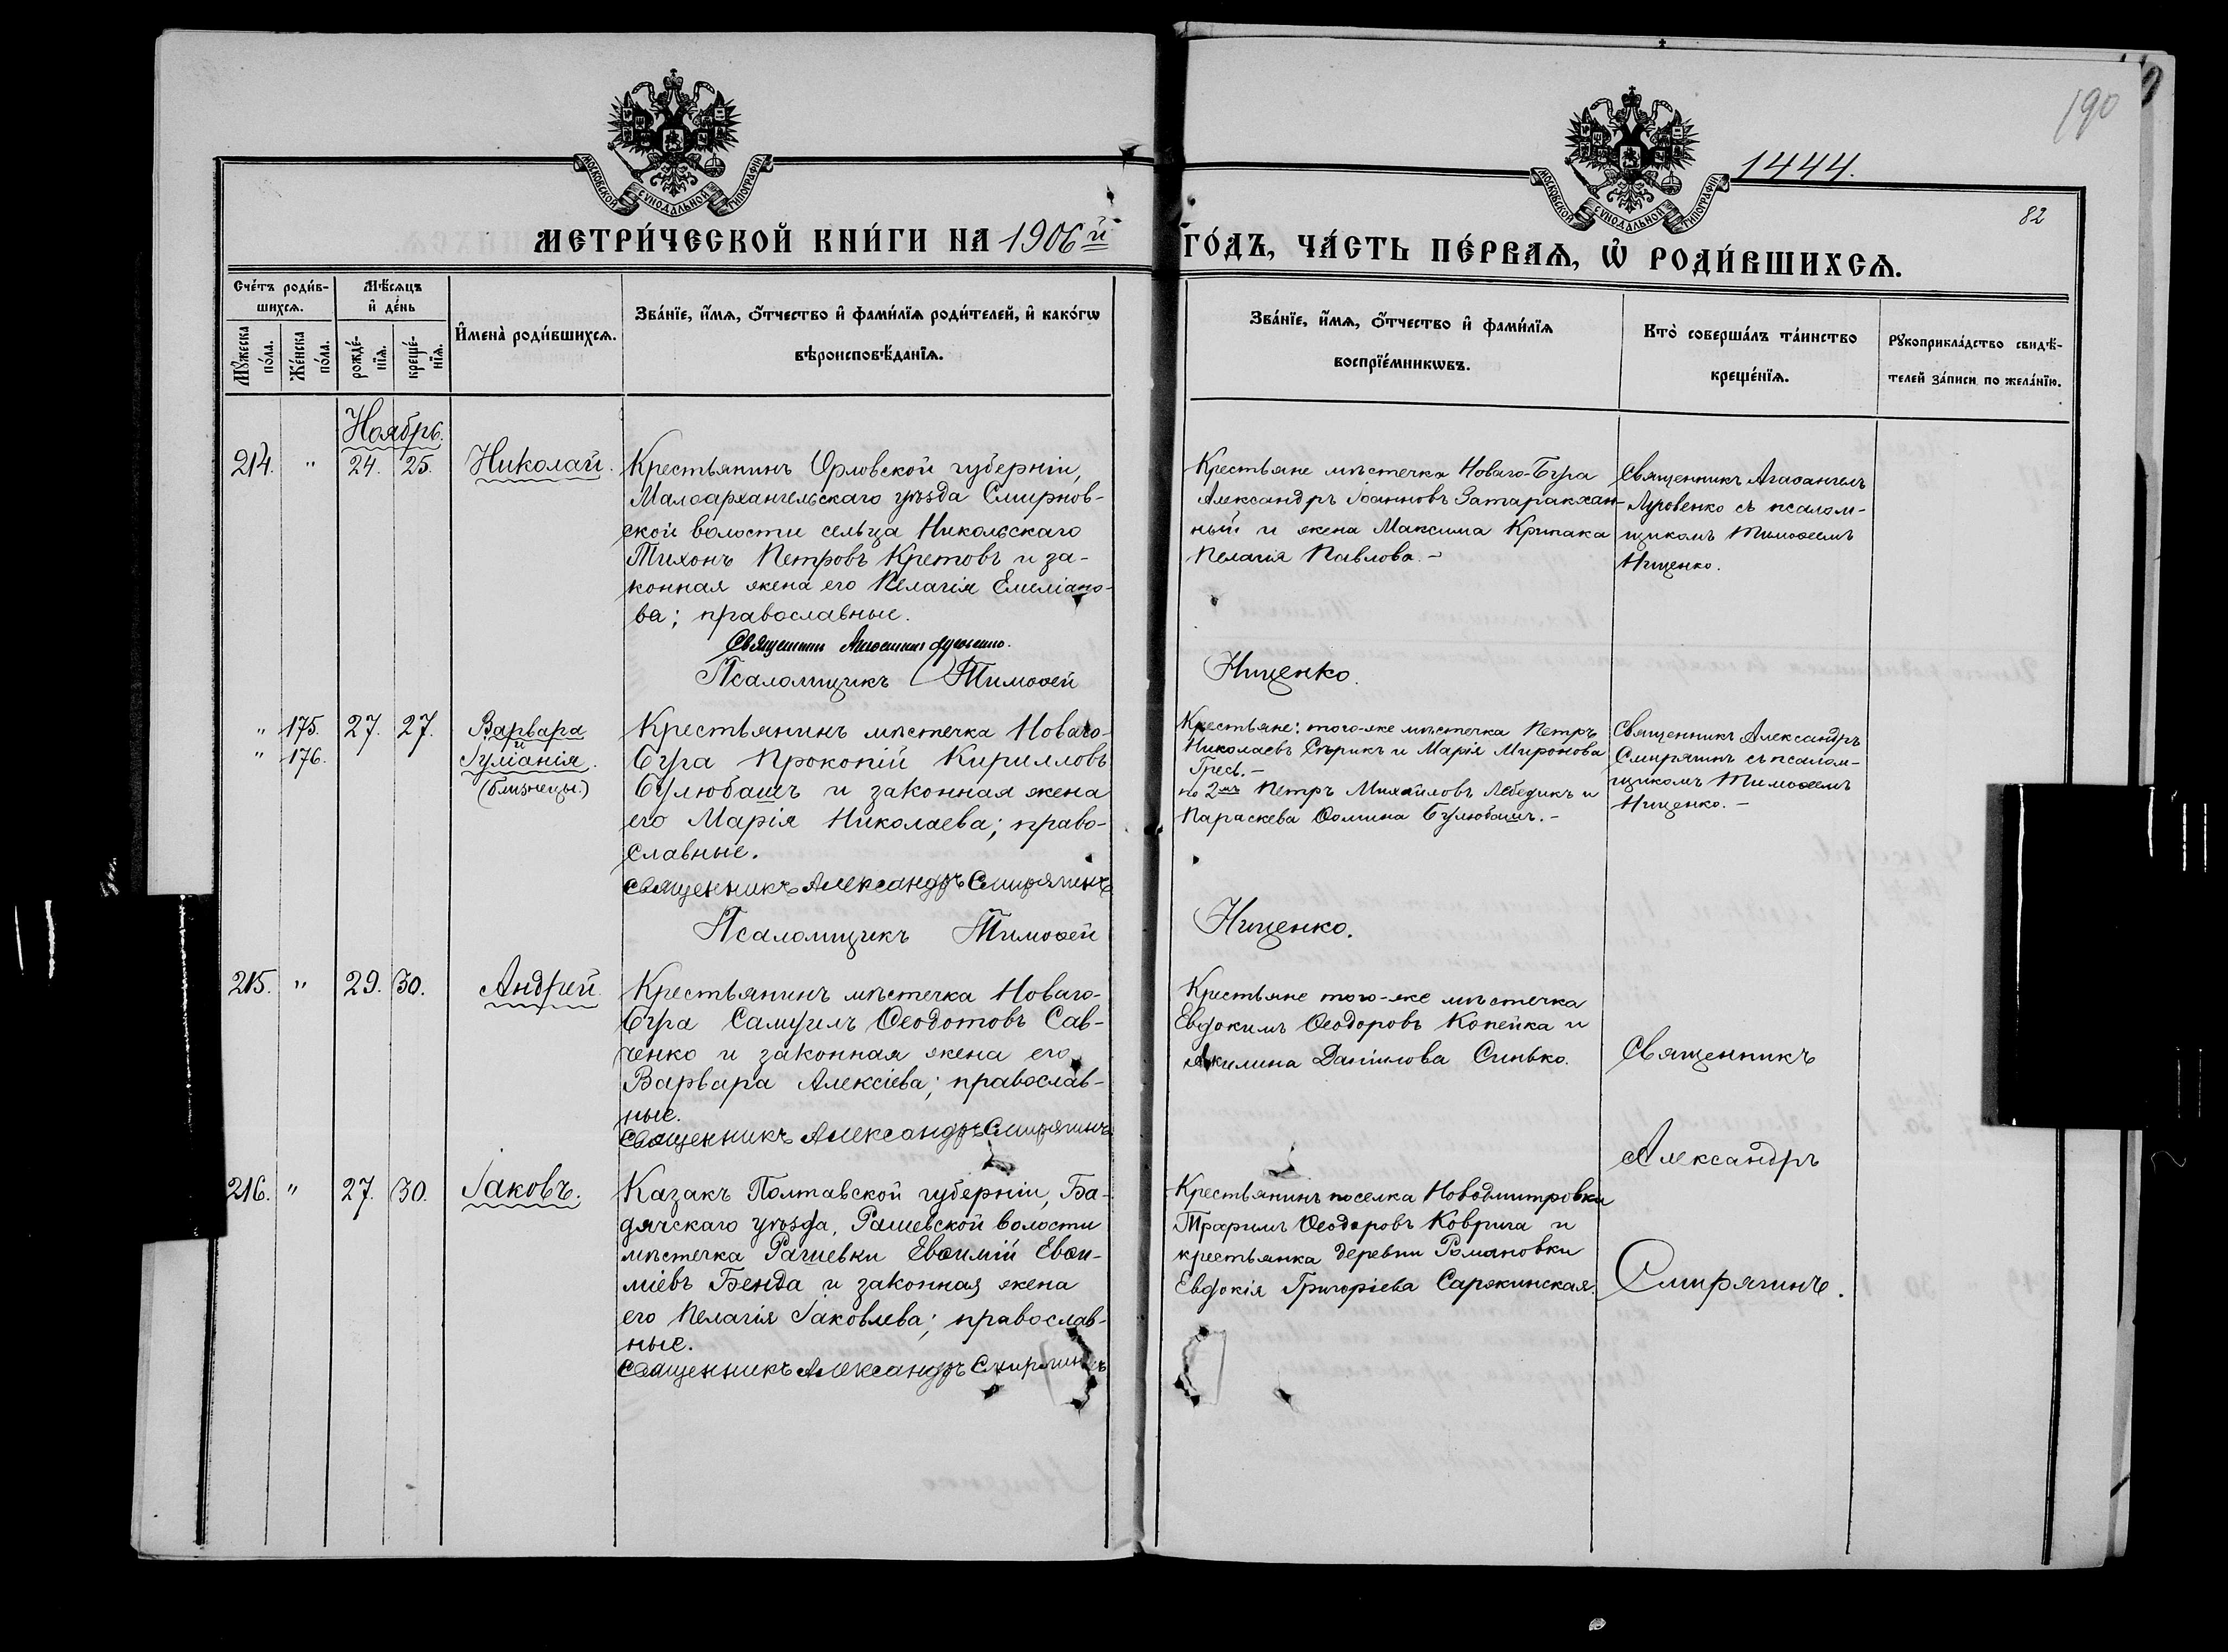 190
МОСКОВСКОЙ СѴНОДАЛЬНОЙ ТИПОГРАФІИ
МОСКОВСКОЙ СѴНОДАЛЬНОЙ ТИПОГРАФІИ
1444.
82
МЕТРИ́ЧЕСКОЙ КНИ́ГИ НА 1906й
ГО́ДЪ, ЧА́СТЬ ПЕ́РВАѦ, Ѡ҆ РОДИ́ВШИХСѦ.
Сче́тъ роди́в-
шихсѧ.
Мꙋ́жеска по́ла.
Же́нска по́ла.
Мѣ́сѧцъ
и҆ де́нь
рожде́-
нїѧ.
креще́-
нїѧ.
И҆мена̀ роди́вшихсѧ.
Зва́нїе, и҆́мѧ, ѻ҆́тчество и҆ фами́лїѧ роди́телей, и҆ како́гѡ
вѣроисповѣ́данїѧ.
Зва́нїе, и҆́мѧ, ѻ҆́тчество и҆ фами́лїѧ
воспрїе́мникѡвъ.
Кто̀ соверша́лъ та́инство
креще́нїѧ.
Рꙋкоприкла́дство свидѣ́-
телей за́писи по жела́нїю.
Ноябрь.
214. " 24. 25. Николай.
Крестьянинъ Орловской губерніи,
Малоархангельскаго уѣзда Смирнов-
ской волости сельца Никольскаго
Тихонъ Петровъ Кретовъ и за-
конная жена его Пелагія Емеліано-
ва; православные.
Священникъ Агаѳангелъ Луговенко.
Псаломщикъ Тимоѳей
Крестьяне мѣстечка Новаго-Буга
Александръ Іоанновъ Затаракхан-
ный и жена Максима Крипака
Пелагія Павлова. –
Священникъ Агаѳангелъ
Луговенко съ псалом-
щикомъ Тимоѳеемъ
Нищенко.
Нищенко.
" 175. 27. 27. Варвара
и
" 176. Іуліанія.
(близнецы.)
Крестьянинъ мѣстечка Новаго-
Буга Прокопій Кирилловъ
Булюбашъ и законная жена
его Марія Николаева; право-
славные.
Священникъ Александръ Смирягинъ
Псаломщикъ Тимоѳей
Крестьяне: того-же мѣстечка Петръ
Николаевъ Сѣрикъ и Марія Миронова
Гресь. –
по 2мъ Петръ Михайловъ Лебедикъ и
Параскева Ѳомина Булюбашъ. –
Священникъ Александръ
Смирягинъ съ псалом-
щикомъ Тимоѳеемъ
Нищенко. –
Нищенко.
215. " 29. 30. Андрей
Крестьянинъ мѣстечка Новаго-
Буга Самуилъ Ѳеодотовъ Сав-
ченко и законная жена его
Варвара Алексіева; православ-
ные.
Священникъ Александръ Смирягинъ
Крестьяне того-же мѣстечка
Евдокимъ Ѳеодоровъ Копейка и
Акилина Даніилова Синько.
Священникъ
Александръ
Смирягинъ.
216. " 27. 30. Іаковъ.
Казакъ Полтавской губерніи, Га-
дячскаго уѣзда, Рашевской волости
мѣстечка Рашевки Евѳимій Евѳи-
міевъ Бенда и законная жена
его Пелагія Іаковлева; православ-
ные.
Священникъ Александръ Смирягинъ
Крестьянинъ поселка Новодмитровки
Трофимъ Ѳеодоровъ Коврига и
крестьянка деревни Романовки
Евдокія Григоріева Саржинская.